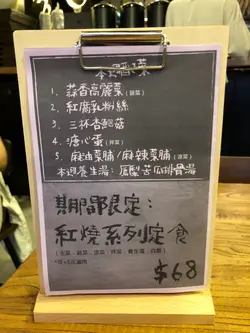 本週配菜
1. 蒜香高麗菜(鹹菜)
2. 紅腐乳粉絲
3. 三杯杏鮑菇
4. 溏心蛋(拌菜)
5. 麻油菜脯/麻辣菜脯(涼菜)
本週養生湯:鳳梨苦瓜排骨湯
期間限定:
紅燒系列定食
$68